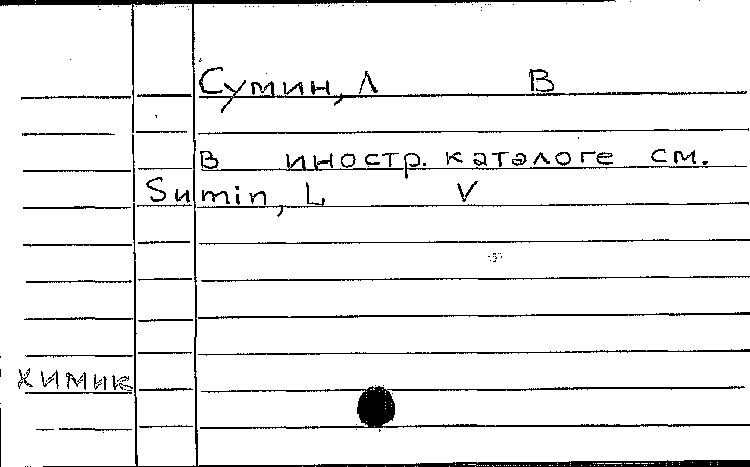 Сумин, Л В
В иностр. каталоге см.
Sumin, L V
химик